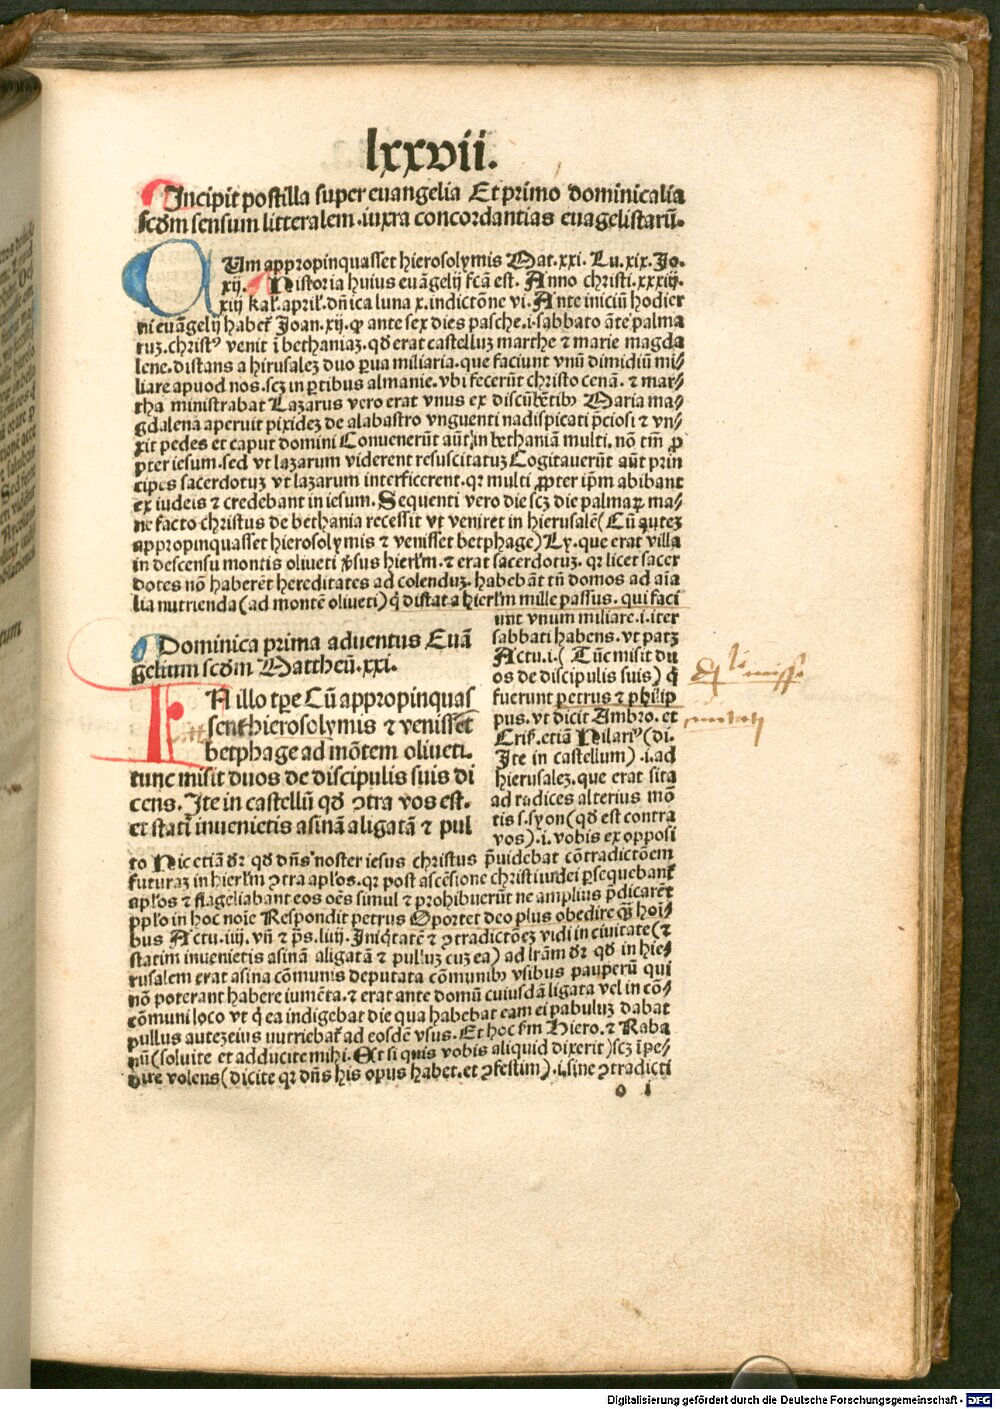 lxxvii.
Incipit postilla super euangelia Et primo dominicalia
scd̄m sensum litteralem .iuxta concordantias euāgelistaru̅.
CUm appropinquasset hierosolymis Mat.xxi. Lu.xix. Jo.
xij. Historia huius euāgelij fcā est. Anno christi.xxxiij.
xiij kal̓.april̓.dn̄ica luna x.indictōne vi. Ante iniciū hodier
ni euāgelij habet̓ Joan.xij. ꝙ ante sex dies pasche.i.sabbato āte palma
ruꝫ.christꝰ venit ī bethaniaꝫ.qd̄ erat castelluꝫ marthe ⁊ marie magda
lene.distans a hirusaleꝫ duo ꝑua miliaria.que faciunt vnū dimidiū mi⸗
liare apuod nos.scꝫ in ꝑtibus almanie.vbi fecerūt christo cenā. ⁊ mar⸗
tha ministrabat Lazarus vero erat vnus ex discūbētibꝰ Maria ma⸗
gdalena aperuit pixideꝫ de alabastro vnguenti nadispicati p̄ciosi ⁊ vn⸗
xit pedes et caput domini Conuenerūt aūt in bethaniā multi. nō tm̄ ꝓ
pter iesum.sed vt lazarum viderent resuscitatuꝫ Cogitauerūt aūt prin
cipes sacerdotuꝫ vt lazarum interficerent.qꝛ multi ꝓpter ip̄m abibant
ex iudeis ⁊ credebant in iesum. Sequenti vero die scꝫ die palmaꝝ ma⸗
ne facto christus de bethania recessit vt veniret in hierusalē(Cū auteꝫ
appropinquasset hierosolymis ⁊ venisset betphage)Ly.que erat villa
in descensu montis oliueti v̓sus hierl̓m.⁊ erat sacerdotuꝫ. qꝛ licet sacer
dotes nō haberēt hereditates ad colenduꝫ.habebāt tn̄ domos ad aīa
lia nutrienda(ad montē oliueti)q̓ distat a hierl̓m mille passus. qui faci
unt vnum miliare.i.iter
sabbati habens.vt patꝫ
Actu.i.(Tūc misit du
os de discipulis suis) q̓
fuerunt petrus ⁊ philip
pus. vt dicit Ambro. et
Cris̓. etiā Hilariꝰ(di.
Jte in castellum).i.ad
hierusaleꝫ.que erat sita
ad radices alterius mō
tis s.syon(qd̄ est contra
vos).i.vobis ex opposi
Dominica prima aduentus Euā
gelium scd̄m Mattheū.xxi.
IN illo tꝑe Cū appropinquas
sent hierosolymis ⁊ venisset
betphage ad mōtem oliueti.
tunc misit duos de discipulis suis di
cens. Jte in castellū qd̄ ꝯtra vos est.
et statī inuenietis asinā aligatā ⁊ pul
to Hic etiā dꝛ qd̄ dn̄s noster iesus christus p̄uidebat cōtradictōem
futuraꝫ in hierl̓m ꝯtra apl̓os.qꝛ post ascēsione christ iudei ꝑsequebant̓
apl̓os ⁊ flagellabant eos oēs simul ⁊ prohibuerūt ne amplius p̄dicarēt
pplo in hoc noīe Respondit petrus Oportet deo plus obedire qᷓꝫ hoī⸗
bus Actu.iiij. vn̄ ⁊ p̄s.liiij. Jniq̓tatē ⁊ ꝯtradictōeꝫ vidi in ciuitate(⁊
statim inuenietis asinā aligatā ⁊ pulluꝫ cuꝫ ea) ad lrām dꝛ qd̄ in hie⸗
rusalem erat asina cōmunis deputata cōmunibꝰ vsibus pauperū qui
nō poterant habere iumēta.⁊ erat ante domū cuiusdā ligata vel in cō⸗
cōmuni loco vt q̓ ea indigebat die qua habebat eam ei pabuluꝫ dabat
pullus auteꝫ eius uutriebat̓ ad eosdē vsus. Et hoc s̓m Hiero.⁊ Raba
nū(soluite et adducite mihi. Et si quis vobis aliquid dixerit)scꝫ īpe⸗
dire volens(dicite qꝛ dn̄s his opus habet.et ꝯfestim).i.sine ꝯtradicti
o i
Digitalisierung gefördert durch die Deutsche Forschungsgemeinschaft - DFG